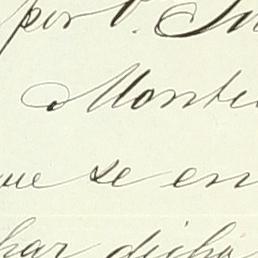 por D.
Monte
que se en
har dicha